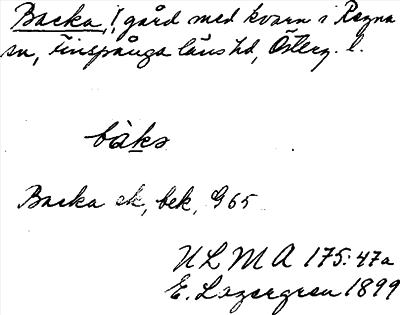 Backa, gård med kvarn i Regna
sn, Finspånga läns hd, Österg. l.
båks
Backa ek, bek, G 65
ULMA 175:47a
E. Lagergren 1899